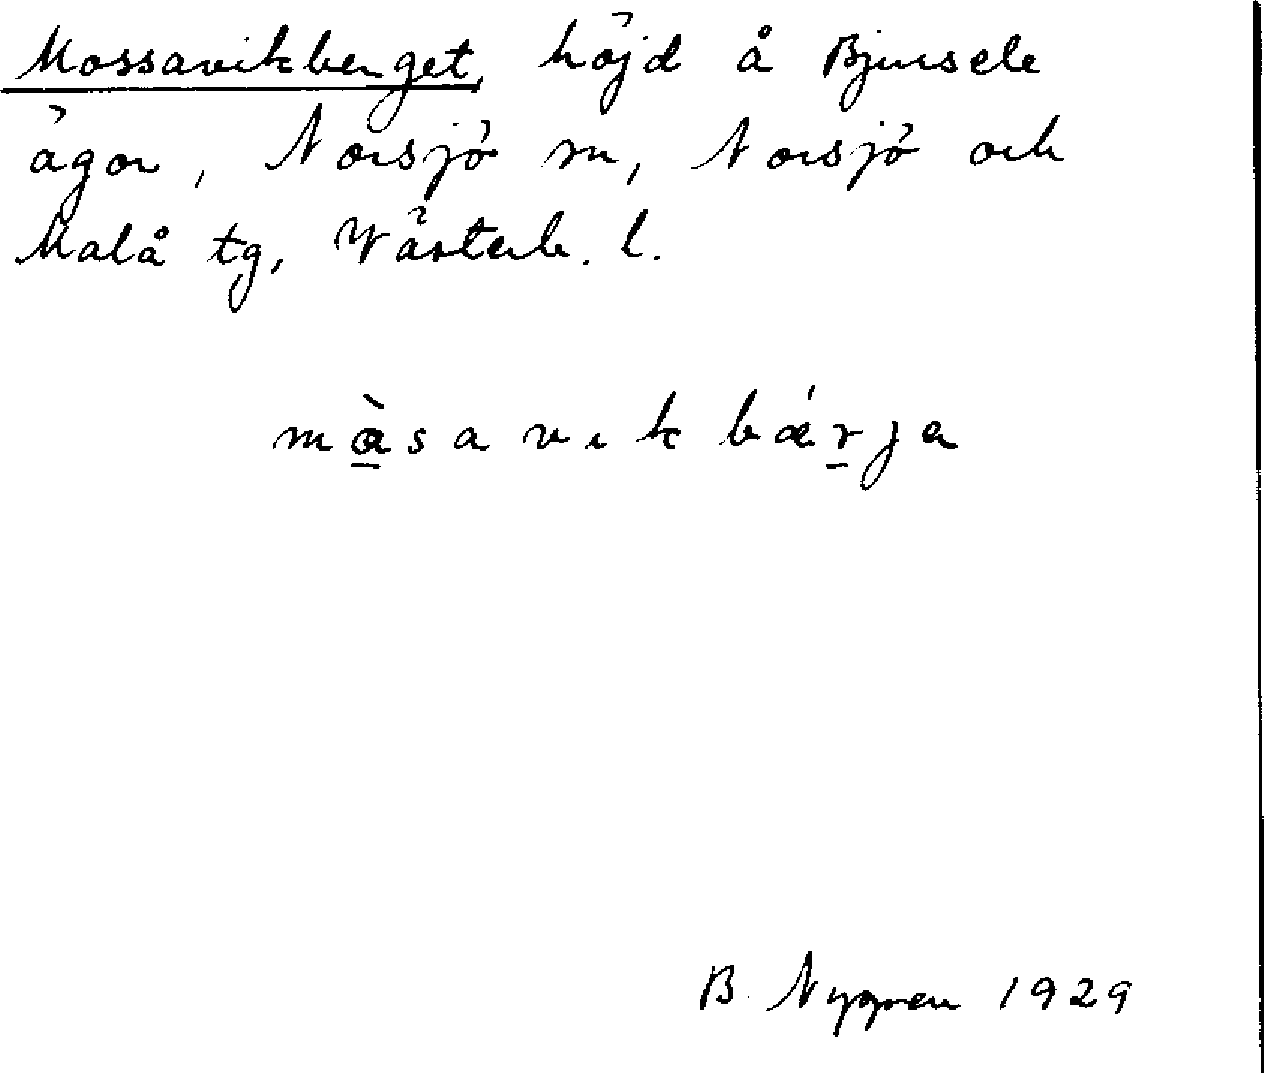 Mossavikberget, höjd å Bjursele
ägor, Norsjö sn, Norsjö och
Malå tg, Västerb. l.
màsavıkbǽrja
B. Nygren 1929